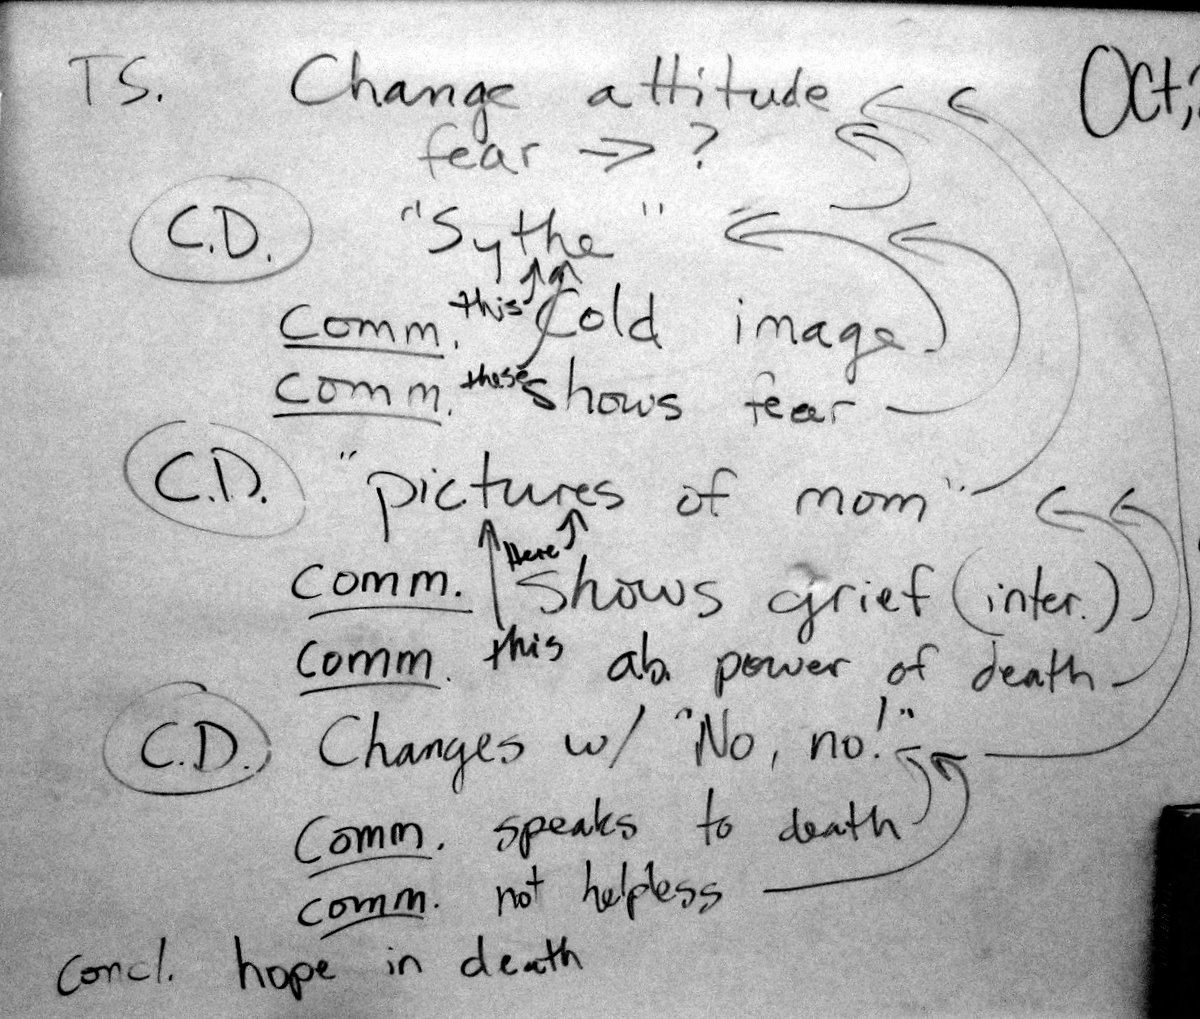 TS. Change attitude
Oct,
fear => ?
C.D. "Sythe"
Comm. this Cold image
Comm. these shows fear
C.D. "pictures of mom"
Here
Comm. shows grief (inter.)
Comm. this ab. power of death
C.D. Changes w/ "No, no!"
Comm. speaks to death
Comm. not helpless
Concl. hope in death